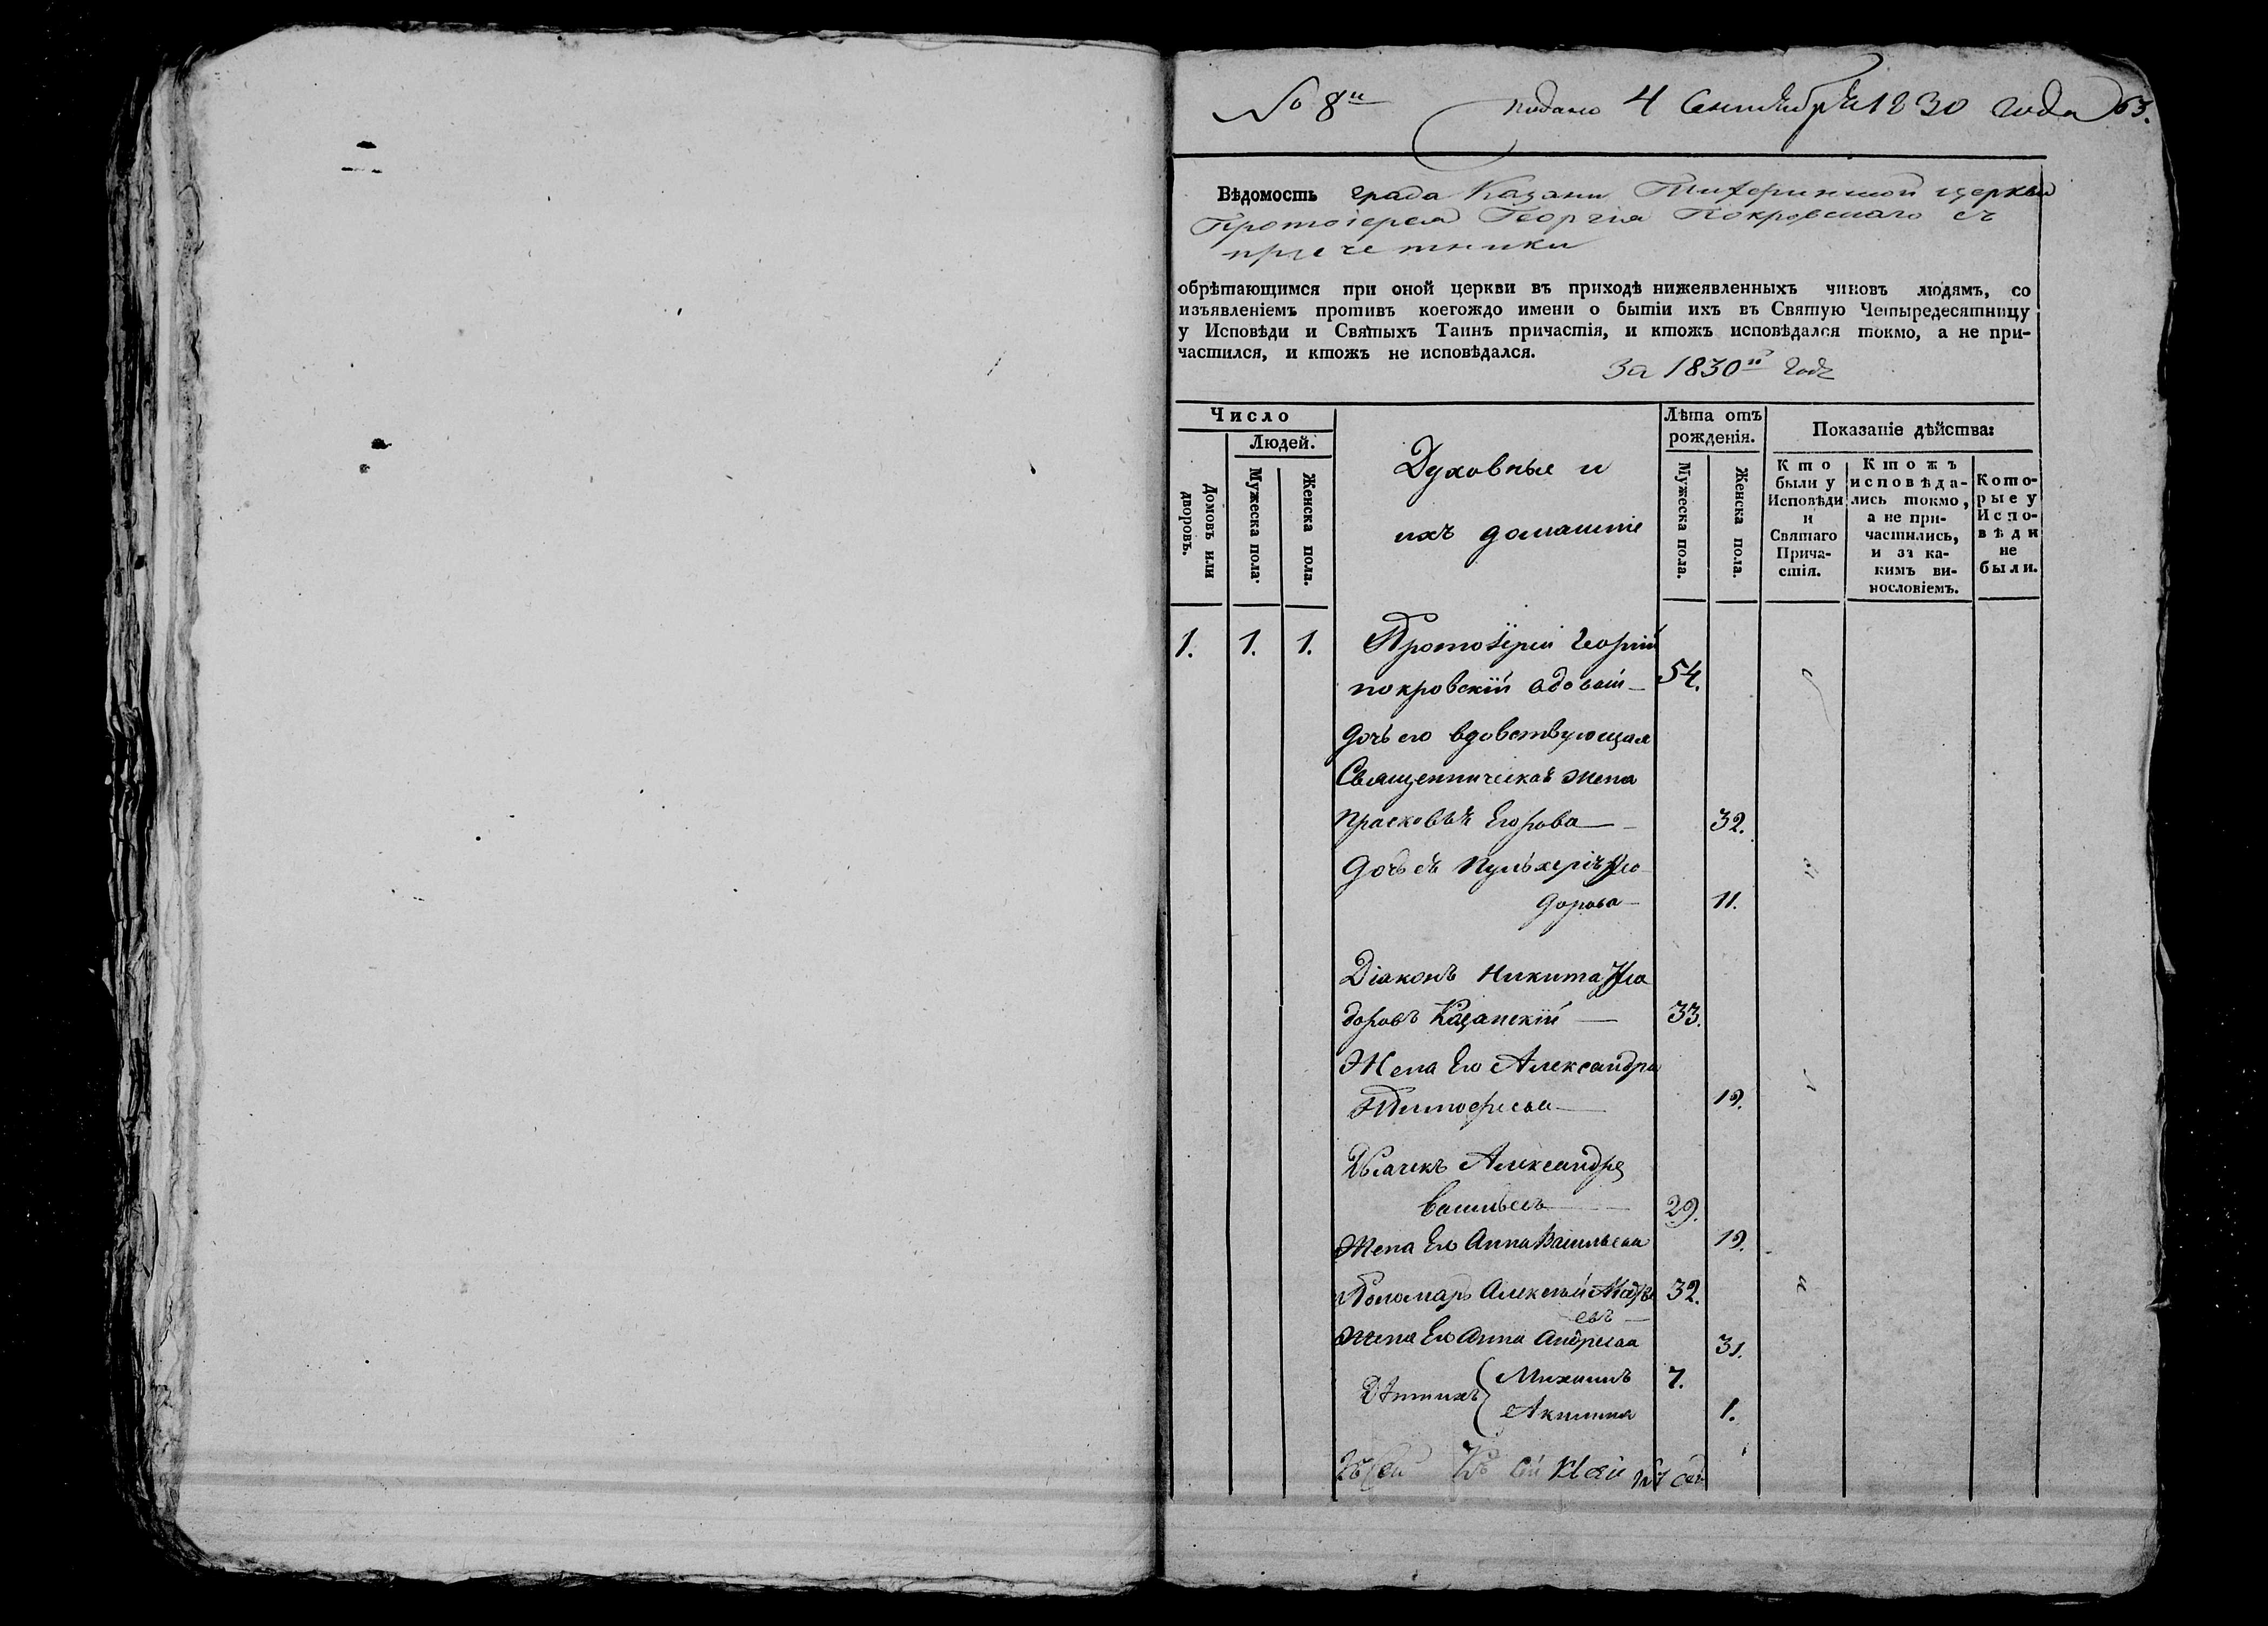 № 8й подано 4 Сентября 1830 года 63.
Вѣдомость града Казани Тихвинской церкви
Протоіерея Георгія Покровскаго съ
причетники
обрѣтающимся при оной церкви въ приходѣ нижеявленныхъ чиновъ людямъ, со
изъявленіемъ противъ коегождо имени о бытіи ихъ въ Святую Четыредесятницу
у Исповѣди и Святыхъ Таинъ причастія, и ктожъ исповѣдался токмо, а не при-
частился, и ктожъ не исповѣдался.
За 1830й годъ
Число
Людей.
Домовъ или дворовъ.
Мужеска пола.
Женска пола.
Духовные и
ихъ домашніе
Лѣта отъ
рожденія.
Мужеска пола.
Женска пола.
Показаніе дѣйства:
Кто
были у
Исповѣди
и
Святаго
Прича-
стія.
Ктожъ
исповѣда-
лись токмо,
а не при-
частились,
и за ка-
кимъ ви-
нословіемъ.
Кото-
рые у
Испо-
вѣди
не
были.
1. 1. 1. Протоіерей Георгій
покровскій вдовый 54.
дочь его вдовствующая
Священническая жена
Прасковья Егорова 32.
Дочь ея Пульхерія Ѳео-
дорова 11.
Діаконъ Никита Ѳео
доровъ Казанскій 33.
Жена Его Александра
Тимофеева 19.
Дьячекъ Александръ
Васильевъ 29.
Жена Его Анна Васильева 19.
Пономарь Алексѣй 32.
евъ
Жена Его Анна Андреева 31.
Дѣти ихъ Михаилъ 7.
Акилина 1.